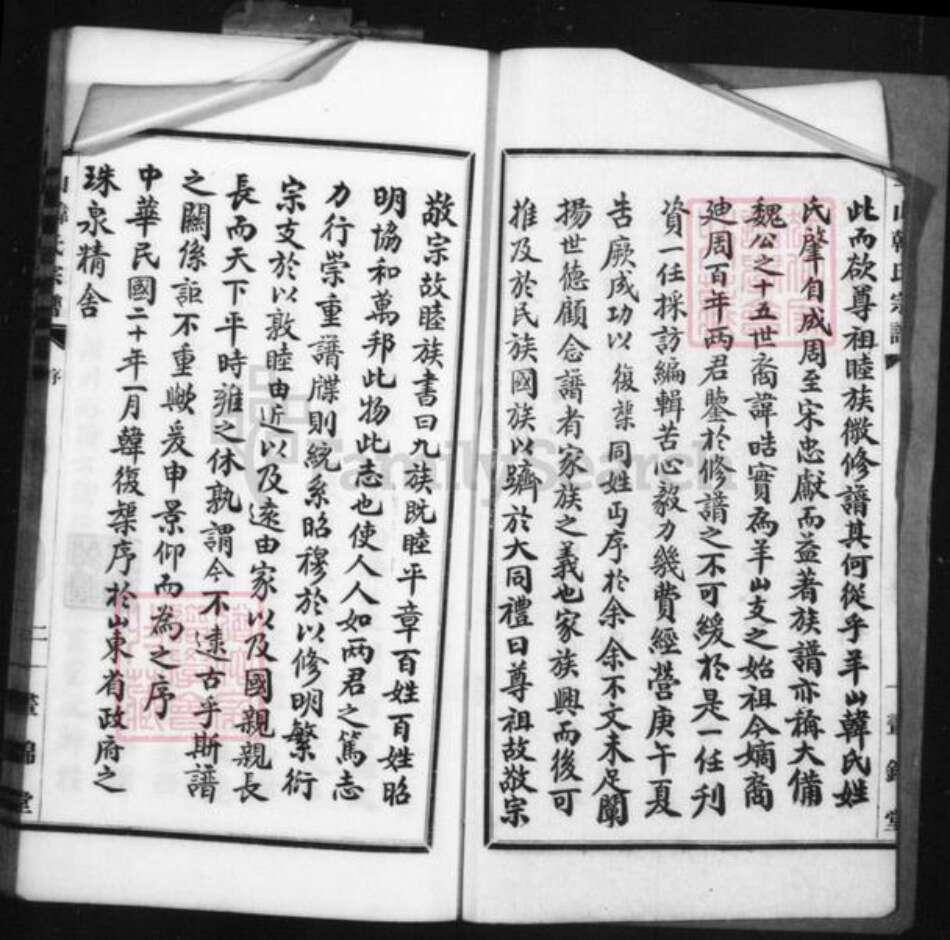 此而欲尊祖睦族微修譜其何從乎羊山韓氏姓
氏肇自成周至宋忠獻而益著族譜亦稱大備
魏公之十五世裔諱晧實為羊山支之始祖今嫡裔
廸周百年兩君鑒於修譜之不可緩於是一任刊
資一任採訪編輯苦心毅力幾費經營庚午夏
告厥成功以復榘同姓丏序於余余不文未足闡
揚世德顧念譜者家族之義也家族興而後可
推及於民族國族以躋於大同禮曰尊祖故敬宗
敬宗故睦族書曰九族既睦平章百姓百姓昭
明協和萬邦此物此志也使人人如兩君之篤志
力行崇重譜牒則統系昭穆於以修明繁衍
宗支於以敦睦由近以及遠由家以及國親親長
長而天下平時雍之休孰謂今不逮古乎斯譜
之關係詎不重歟爰申景仰而為之序
中華民國二十年一月韓復榘序於山東省政府之
珠泉精舍
序
二
晝錦堂
FamilySearch